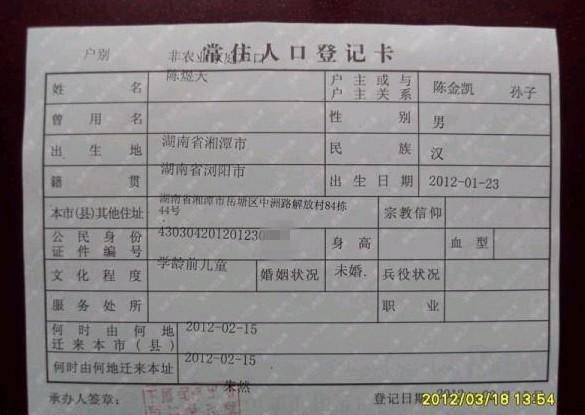 户别 非农业家庭户口 常住人口登记卡
姓名 陈煜天 户主或与户主关系 陈金凯 孙子
曾用名 性别 男
出生地 湖南省湘潭市 民族 汉
籍贯 湖南省浏阳市 出生日期 2012-01-23
本市(县)其他住址 湖南省湘潭市岳塘区中洲路解放村84栋44号 宗教信仰
公民身份证件编号 43030420120123 身高 血型
文化程度 学龄前儿童 婚姻状况 未婚. 兵役状况
服务处所 职业
何时由何地迁来本市(县) 2012-02-15
何时由何地迁来本址 2012-02-15
承办人签章: 朱然 登记日期
2012/03/18 13:54